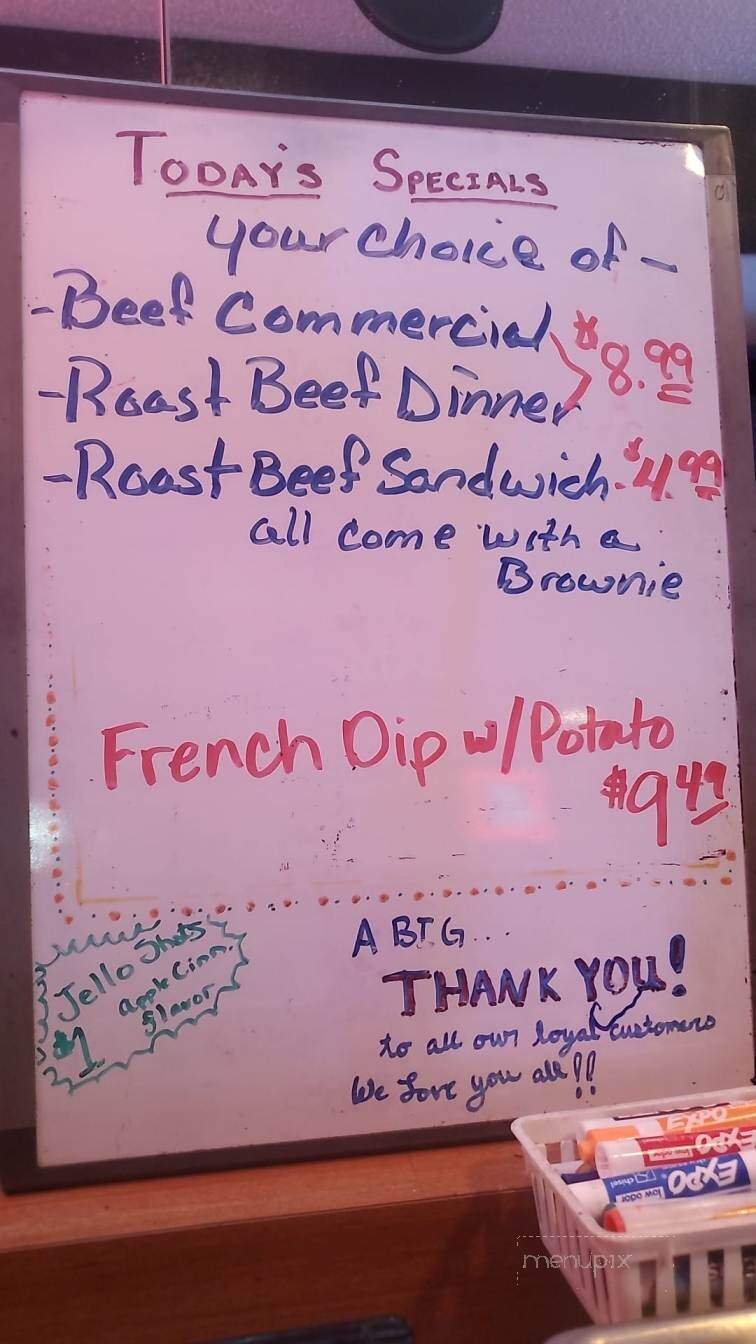 TODAY'S SPECIALS
your choice of -
- Beef Commercial
$8.99
- Roast Beef Dinner
- Roast Beef Sandwich - $4.99
all come with a
Brownie
French Dip w/Potato
$9.49
Jello Shots
apple Cinn.
flavor
$1
A BIG...
THANK YOU!
to all our loyal customers
We Love you all!!
EXPO
EXPO
EXPO
low odor
chisel
menupix